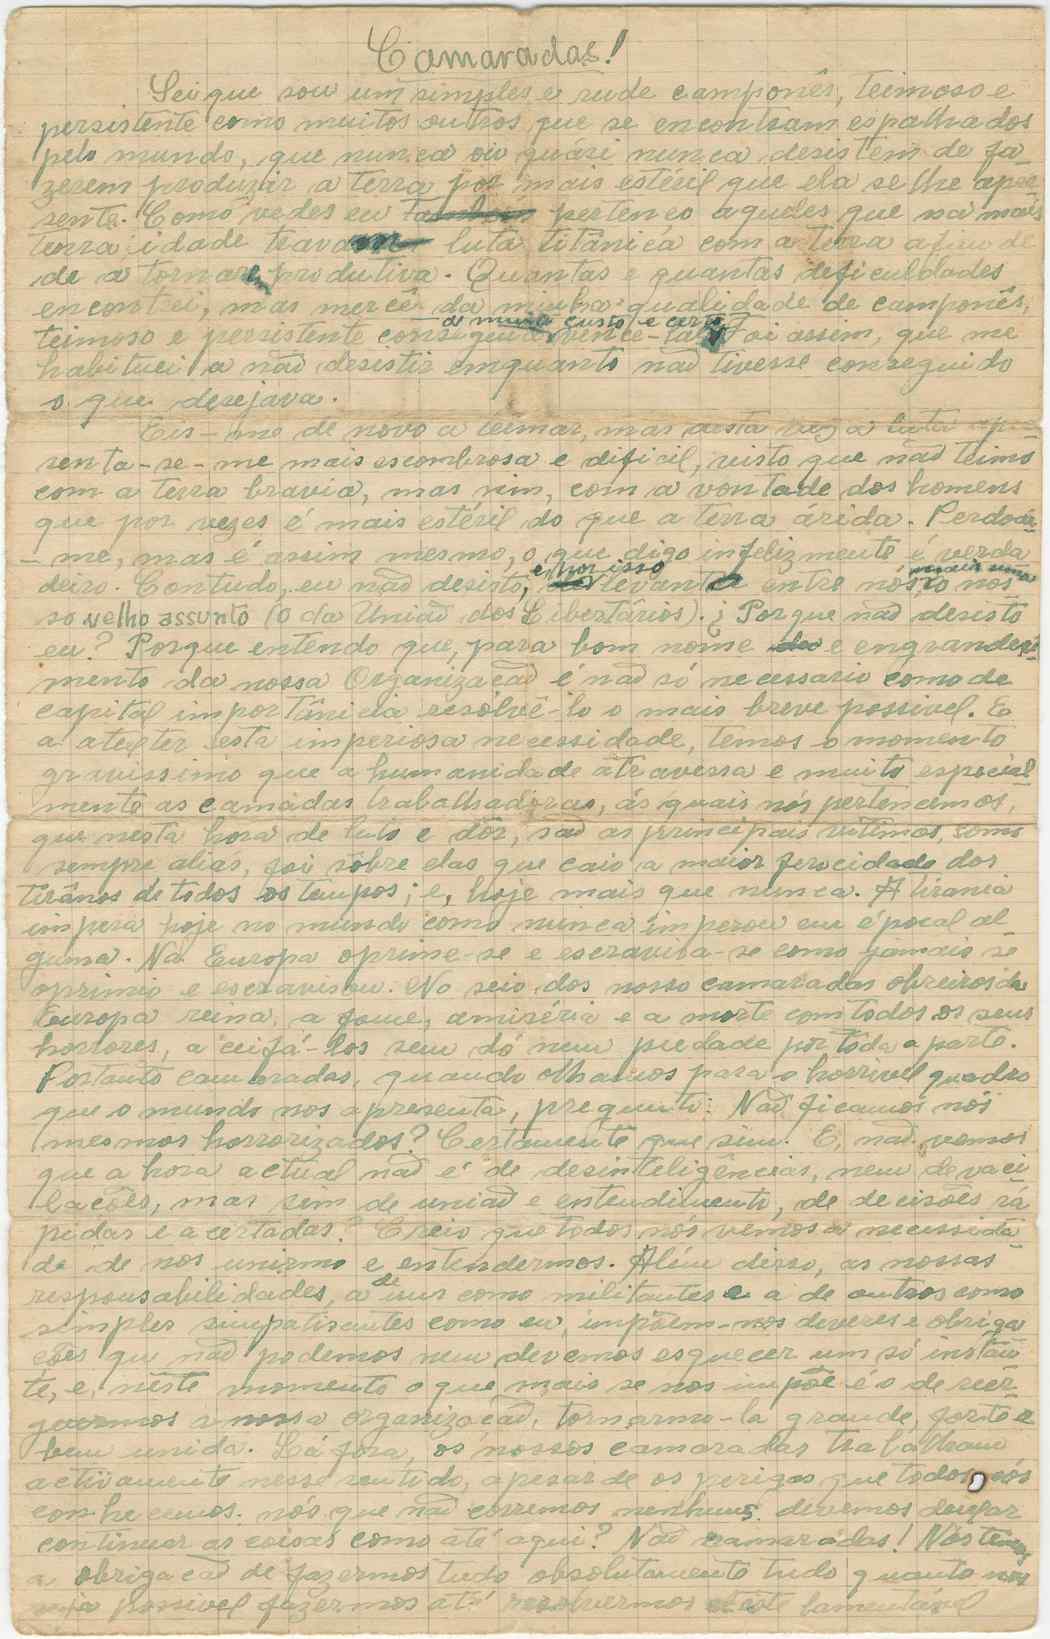 Camaradas!
Sei que sou um simples e rude camponês, teimoso e
persistente como muitos outros que se encontram espalhados
pelo mundo, que nunca ou quási nunca desistem de fa
zerem produzir a terra por mais estéril que ela se lhe apre
sente. Como vedes eu também pertenço aqueles que na mais
terra idade travam luta titânica com a terra afim de
de a tornarem produtiva. Quantas e quantas deficuldades
encontrei, mas mercê da minha qualidade de camponês,
de muito custo, e certo
teimoso e persistente consegui vence-las. Foi assim, que me
habituei a não desistir emquanto não tivesse conseguido
o que desejava.
Eis-me de novo a teimar, mas desta vez a luta apre
senta-se-me mais escombrosa e dificil, visto que não teimo
com a terra bravia, mas sim, com a vontade dos homens
que por vezes é mais estéril do que a terra árida. Perdoai-
-me, mas é assim mesmo, o que digo infelizmente é verda
e, por isso mais uma
deiro. Contudo, eu não desisto, levanto entre nós, o nos
so velho assunto (o da União dos Libertários). ¿Porque não desisto
eu? Porque entendo que, para bom nome e engrandeci-
mento da nossa Organização é não só necessario como de
capital importância resolvê-lo o mais breve possivel. E
a atester esta imperiosa necessidade, temos o momento
gravissimo que a humanidade atravessa e muito especial
mente as camadas trabalhadoras, ás quais nós pertencemos,
que nesta hora de luto e dôr, são as principais vitimas, como
sempre alias, foi sôbre elas que caio a maior ferocidade dos
tirânos de todos os tempos; e, hoje mais que nunca. A tirania
impera hoje no mundo como nunca imperou em épocal al
guma. Na Europa oprime-se e escravisa-se como jamais se
oprimio e escravisou. No seio dos nosso camaradas obreiros da
Europa reina, a fome, a miséria e a morte com todos os seus
horrores, a ceifá-los sem dó nem piedade por tôda a parte.
Portanto camaradas, quando olhamos para o horrivel quadro
que o mundo nos apresenta, pregunto: Não ficamos nós
mesmos horrorizados? Certamente que sim. E, não vemos
que a hora actual não é de desinteligências, nem de vaci
lações, mas sem de união e entendimento, de decisões rá
pidas e acertadas? Creio que todos nós vemos a necessida
de de nos unirmo e entendermos. Além disso, as nossas
de
responsabilidades, a uns como militantes e a de outros como
simples simpatisantes como eu, impõem-nos deveres e obriga
ções que não podemos nem devemos esquecer um só instân
te, e, nêste momento o que mais se nos impõe é o de reer-
guermos a nossa organização, tornarmo-la grande, forte e
bem unida. Lá fora, os nossos camaradas trabalham
activamente nesse sentido, apesar de os perigos que todos nós
conhecemos. nós que não corremos nenhums devemos deixar
continuar as coisas como até aqui? Não camaradas! Nós temos
a obrigação de fazermos tudo absolutamente tudo quanto nos
seja possivel fazermos até resolvermos êste lamentável